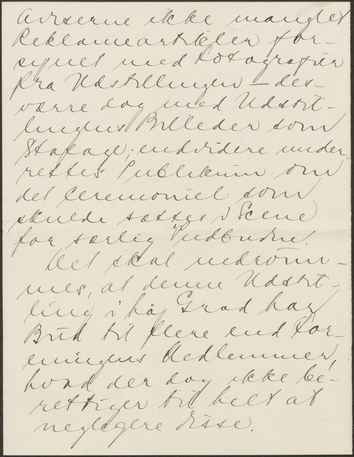 Aviserne ikke manglet
Reklameartikler for-
synet med Fotografier
fra Udstillingen – des-
værre dog med Udstil-
lingens Billeder som
Stafage; endvidere under-
rettes Publikum om
det Ceremoniel som
skulde sættes i Scene
for særlig Indbudne.
Det skal indrøm-
mes, at denne Udstil-
ling i høj Grad har
Bud til flere end For-
eningens Medlemmer,
hvad der dog ikke be-
rettiger til helt at
negligere disse.